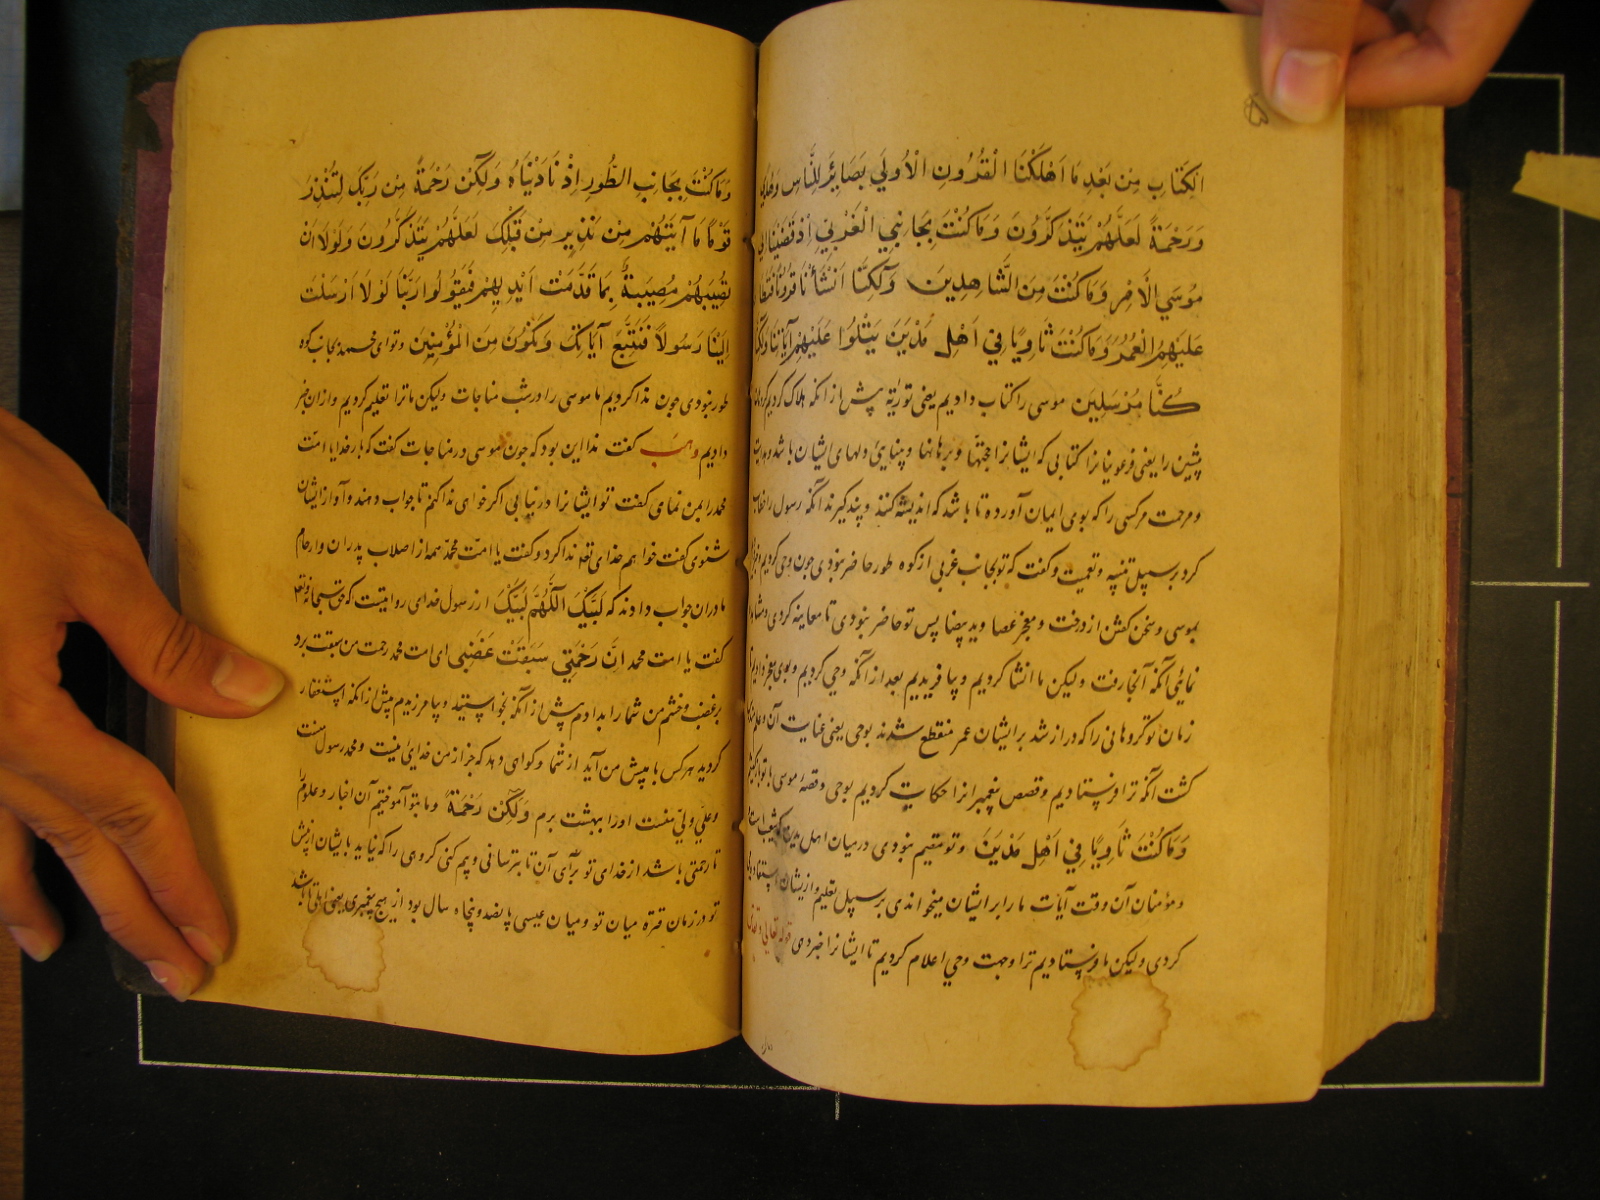 الْكِتَابَ مِنْ بَعْدِ مَا اَهْلَكْنَا الْقُرُونِ الْاُولَي بَصَائِرَ لِلنَّاسِ وَهُدًي
وَرَحْمَةً لَعَلَّهُمْ يَتَذَكَّرُونَ وَمَاكُنْتَ بِجَانِبِي الْغَرْبِي اِذْ قَضَيْنَا اِلَي
مُوسَي الْاَمْر وَمَاكُنْتَ مِنَ الشَّاهِدِينَ وَلَكِنَّا اَنْشَأْنَا قُرُونًا فَتَطَاوَلَ
عَلَيْهِمُ الْعُمُرُ وَمَاكُنْتَ ثَاوِيًا فِي اَهْلِ مَدْيَنَ يَتْلُوا عَلَيْهِمْ آيَاتِنَا وَلَكِنَّا
كُنَّا مُرْسَلِينَ موسی را کتاب دادیم یعنی توریة پیش از انکه هلاک کردیم
پیشین را یعنی فرعونیانرا کتابی که ایشانرا حجتها و برهانها و بینایی دلهای ایشان باشد
و رحمت مرکسی را که بوی ایمان آورده تا باشد که اندیشه کنند و پند گیرند انکه رسول را خطاب
کرد بر سبیل تنبیه و گفت که تو بجانب غربی از کوه طور حاضر نبودی چون وحی کردیم
بموسی و سخن گفتن از درخت و معجز عصا و ید بیضا پس تو حاضر نبودی تا معاینه کردی
آنکه آنجا رفت ولیکن ما انشا کردیم و بیافریدیم بعد از آنکه وحی کردیم
زمان تو گروهانی را که دراز شد بر ایشان عمر منقطع شدند بوحی یعنی غایت آن
گشت آنکه ترا فرستادیم و قصص پیغمبرانرا حکایت کردیم بوحی و قصۀ موسی با تو
وَمَاكُنْتَ ثَاوِيًا فِي اَهْلِ مَدْيَنَ و تو مقیم نبودی در میان اهل مدین
و مؤمنان آن وقت آیات ما را بر ایشان میخواندی بر سبیل تعلیم و از ایشان
کردی ولیکن ما فرستادیم ترا وجهت وحی اعلام کردیم تا ایشانرا خبر دهی قوله تعالی
وَمَاكُنْتَ بِجَانِبِ الطُّورِ اِذْ نَادَيْنَاهُ وَلَكِنْ رَحْمَةً مِنْ رَبِّكَ لِتُنْذِرَ
قَوْمًا مَا آتَيْتَهُمْ مِنْ نَذِيرٍ مِنْ قَبْلِكَ لَعَلَّهُمْ يَتَذَكَّرُونَ وَلَوْلَا اَنْ
تُصِيبَهُمْ مُصِيبَةٌ بِمَا قَدَّمَتْ اَيْدِيهِمْ فَيَقُولُوا رَبَّنَا لَوْلَا اَرْسَلْتَ
اِلَيْنَا رَسُولاً فَنَتَّبِعَ آيَاتِكَ وَنَكُونَ مِنَ الْمُؤْمِنِينَ و تو ای محمد بجانب کوه
طور نبودی چون ندا کردیم ما موسی را در شب مناجات ولیکن ما ترا تعلیم کردیم و از ان خبر
دادیم وهب گفت ندا این بود که چون موسی در مناجات گفت که بار خدایا امّت
محمد را بمن نمای گفت تو ایشانرا در نیابی اگر خواهی ندا کنم تا جواب دهند و آواز ایشان
شنوی گفت خواهم خدای تعالی ندا کرد و گفت یا امّت محمّد همه از اصلاب پدران و ارحام
مادران جواب دادند که لَبَّيْكَ اللَّهُمَّ لَبَّيْكَ از رسول خدای روایتست که حق سبحانه وتعالی
گفت یا امت محمد اِنَّ رَحْمَتِي سَبَقَتْ غَضَبِي ای امت محمد رحمت من سبقت برد
بر غضب و خشم من شما را بدادم پیش از آنکه بخواستید و بیامرزیدم پیش از انکه استغفار
کردید هرکس با پیش من آید از شما و گواهی دهد که جز از من خدایی نیست و محمد رسول منست
و علی ولیّ منست او را ببهشت برم وَلَكِنْ رَحْمَةً و ما بتو آموختیم آن اخبار و علوم را
تا رحمتی باشد از خدای تو برای آن تا بترسانی و بیم کنی گروهی را که نیاید بایشان از پیش
تو در زمان فترة میان تو و میان عیسی پانصد و پنجاه سال بود از هیچ پیغمبری یعنی